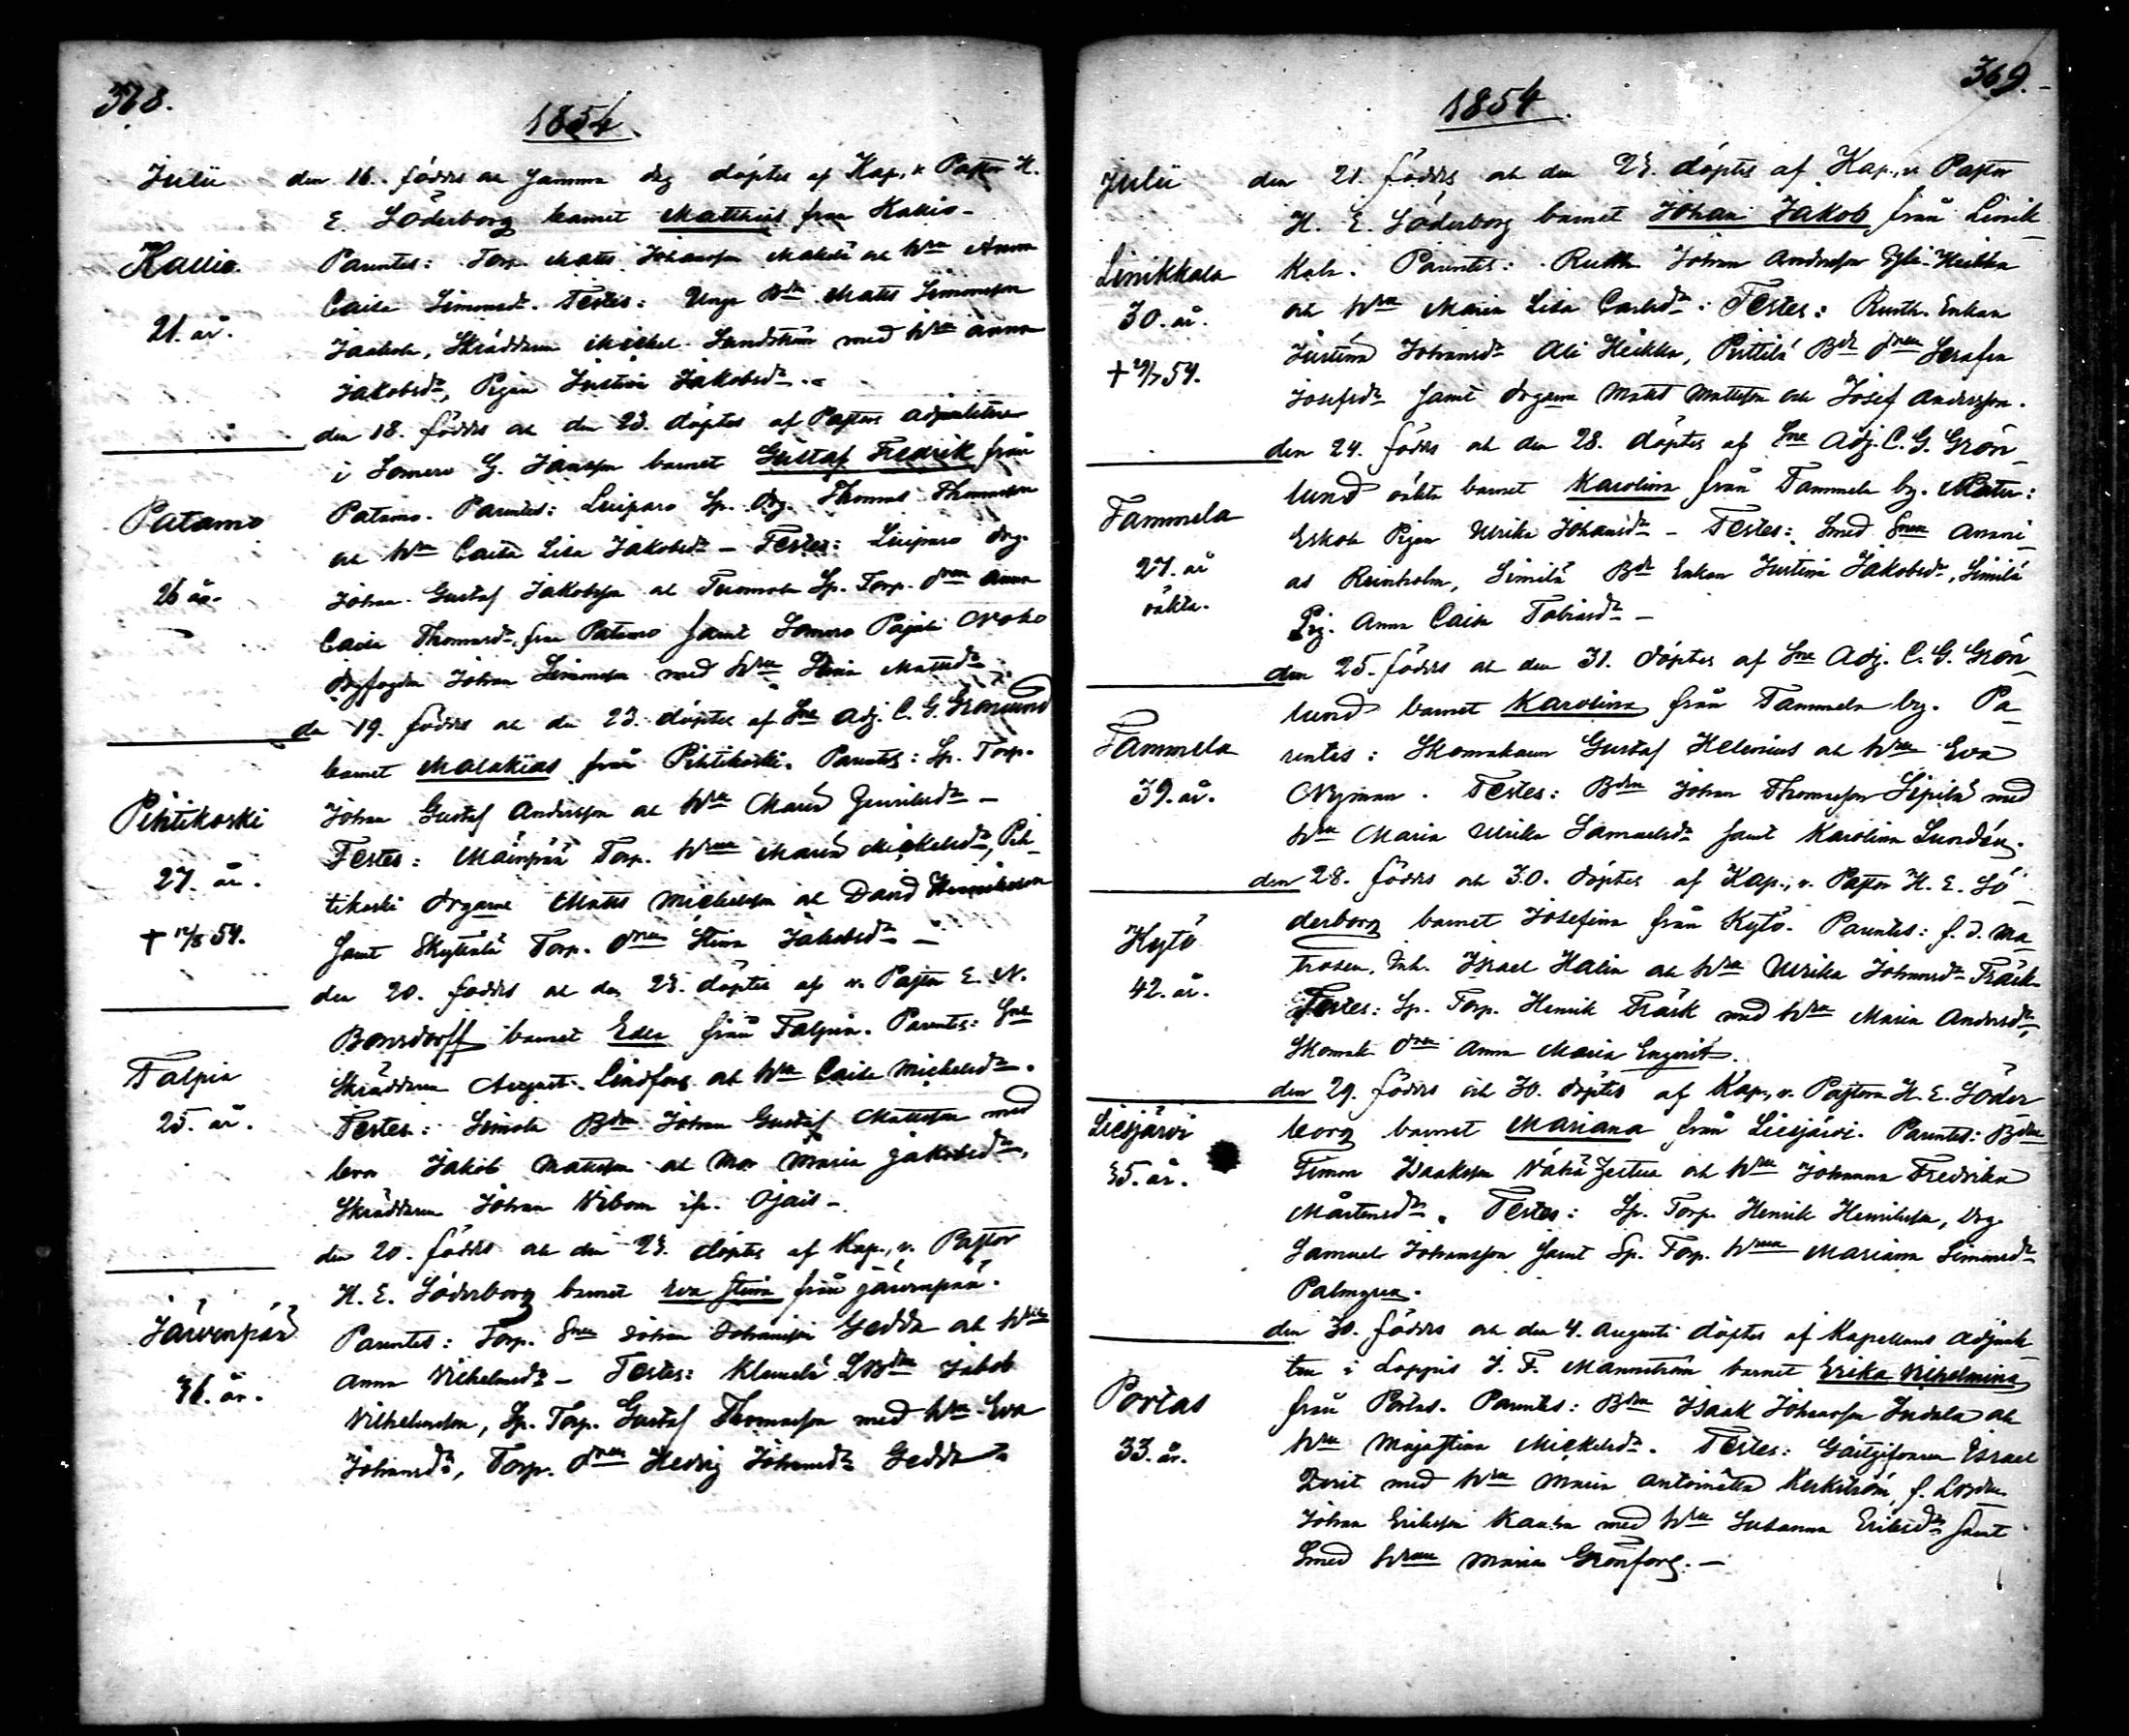 368.
1854.
Julii den 16. föddes och samma dag döptes af Kap., v. Pastor H.
E. Söderborg barnet Matthias från Kallio-
Kallio. Parentes: Torp. Matts Johansson Mäkelä och h:ru Anna
Caisa Simonsd:r. Testes: Unga Bd: Matts Simonsson
21. år. Jaakola, Skräddaren Michel Sandström med h:ru Anna
Jakobsd:r, Pigan Justina Jakobsd:r.
den 18. föddes och den 23. döptes af Pastors adjunkten
i Somero G. Jansson barnet Gustaf Fredrik från
Patamo Patamo. Parentes: Luiparo Sp. Drg. Thomas Thomasson
och h:ru Caisa Lisa Jakobsd:r - Testes: Luiparo drg.
26 år. Johan Gustaf Jakobsson och Tuomola Sp. Torp. d:ren Anna
Caisa Thomasd:r från Patamo samt Somero Pajula
Johan Simonsson med h:ru Mattsd:r
den 19. föddes och den 23. döptes af S:ne Adj. C. G. Grönlund
barnet Malakias från Pihtikoski. Parentes: Sp. Torp.
Pihtikoski Johan Gustaf Andersson och h:ru Maria Henriksd:r -
27. år. Testes: Mäenpää Torp. h:run Maria Mickelsd:r, Pih-
tikoski drgarne Matts Mickelsson och David Henriksson
† 12/8 54. samt Skyttälä Torp. d:ren Stina Jakobsd:r -
den 20. föddes och den 23. döptes af v. Pastor E. N.
Bonsdorff barnet Eda från Talpia. Parentes: S:ne
Talpia Skräddaren August Lindfors och h:ru Caisa Mickelsd:r.
25. år. Testes: Simola Bd:n Johan Gustaf Mattsson med
bror Jakob Mattsson och Mor Maria Jakobsd:r,
Skräddaren Johan Wibom ifr. Ojais -
den 20. föddes och den 23. döptes af Kap., v. Pastor
H. E. Söderborg barnet Eva Stina från Järvenpää.
Järvenpää Parentes: Torp. S:nen Johan Johansson Gedda och h:ru
36. år. Anna Vilhelmsd:r - Testes: Klemelä Bd:n Jakob
Vilhelmsson, Sp. Torp. Gustaf Thomasson med h:ru Eva
Johansd:r, Torp. d:ren Hedvig Johansd:r Gedda
369.
1854.
Julii den 21. föddes och den 23. döptes af Kap., v. Pastor
H. E. Söderborg barnet Johan Jakob från Linik-
Linikkala kala. Parentes: Rusth. Johan Andersson Yli-Heikka
30. år. och h:ru Maria Lisa Carlsd:r. Testes: Rusth. Enkan
Justina Johansd:r Ali Heikka, Perttilä Bd: d:ren Serafia
† 29/7 54. Josefsd:r samt drgarne Matts Mattsson och Josef Andersson.
den 24. föddes och den 28. döptes af S:ne Adj. C. G. Grön-
lund oäkta barnet Karolina från Tammela by. Mater:
Tammela Eskola Pigan Ulrika Johansd:r - Testes: Smed S:nen Anani-
27. år as Reinholm, Similä Bd: Enkan Justina Jakobsd:r, Similä
oäkta. Pig. Anna Caisa Tobiasd:r -
den 25. föddes och den 31. döptes af S:ne Adj. C. G. Grön-
lund barnet Karolina från Tammela by. Pa-
Tammela rentes: Skomakaren Gustaf Helenius och h:ru Eva
39. år. Nyman. Testes: Bd:n Johan Thomasson Sipilä med
h:ru Maria Ulrika Samuelsd:r samt Karolina Lundén.
den 28. föddes och 30. döptes af Kap., v. Pastor H. E. Sö-
derborg barnet Josefina från Kytö. Parentes: f. d. Ma-
Kytö trosen, Inh. Israel Halin och h:ru Ulrika Johansd:r Träsk
42. år. Testes: Sp. Torp. Henrik Träsk med h:ru Maria Andersd:r,
Skomak. d:ren Anna Maria Engerit.
den 29. föddes och 30. döptes af Kap., v. Pastorn H. E. Söder
Liesjärvi borg barnet Mariana från Liesjärvi. Parentes: Bd:n
35. år. Simon Isaaksson Vähä Jestua och h:ru Johanna Fredrika
Mårtensd:r. Testes: Sp. Torp. Henrik Henriksson, Drg.
Samuel Johansson samt Sp. Torp. h:run Mariana Simonsd:r
Palmgren.
den 30. föddes och den 4. Augusti döptes af Kapellans adjunk-
ten i Loppis J. F. Mannström barnet Erika Vilhelmina
Portas från Portas. Parentes: Bd:n Isaak Johansson Indala och
33. år. h:ru Maja Stina Mickelsd:r. Testes: Gästgifvaren Israel
med h:ru Maria Antoinetta f.
Johan Eriksson Kauha med h:ru Susanna Eriksd:r samt
Smed h:run Maria Grönfors. -